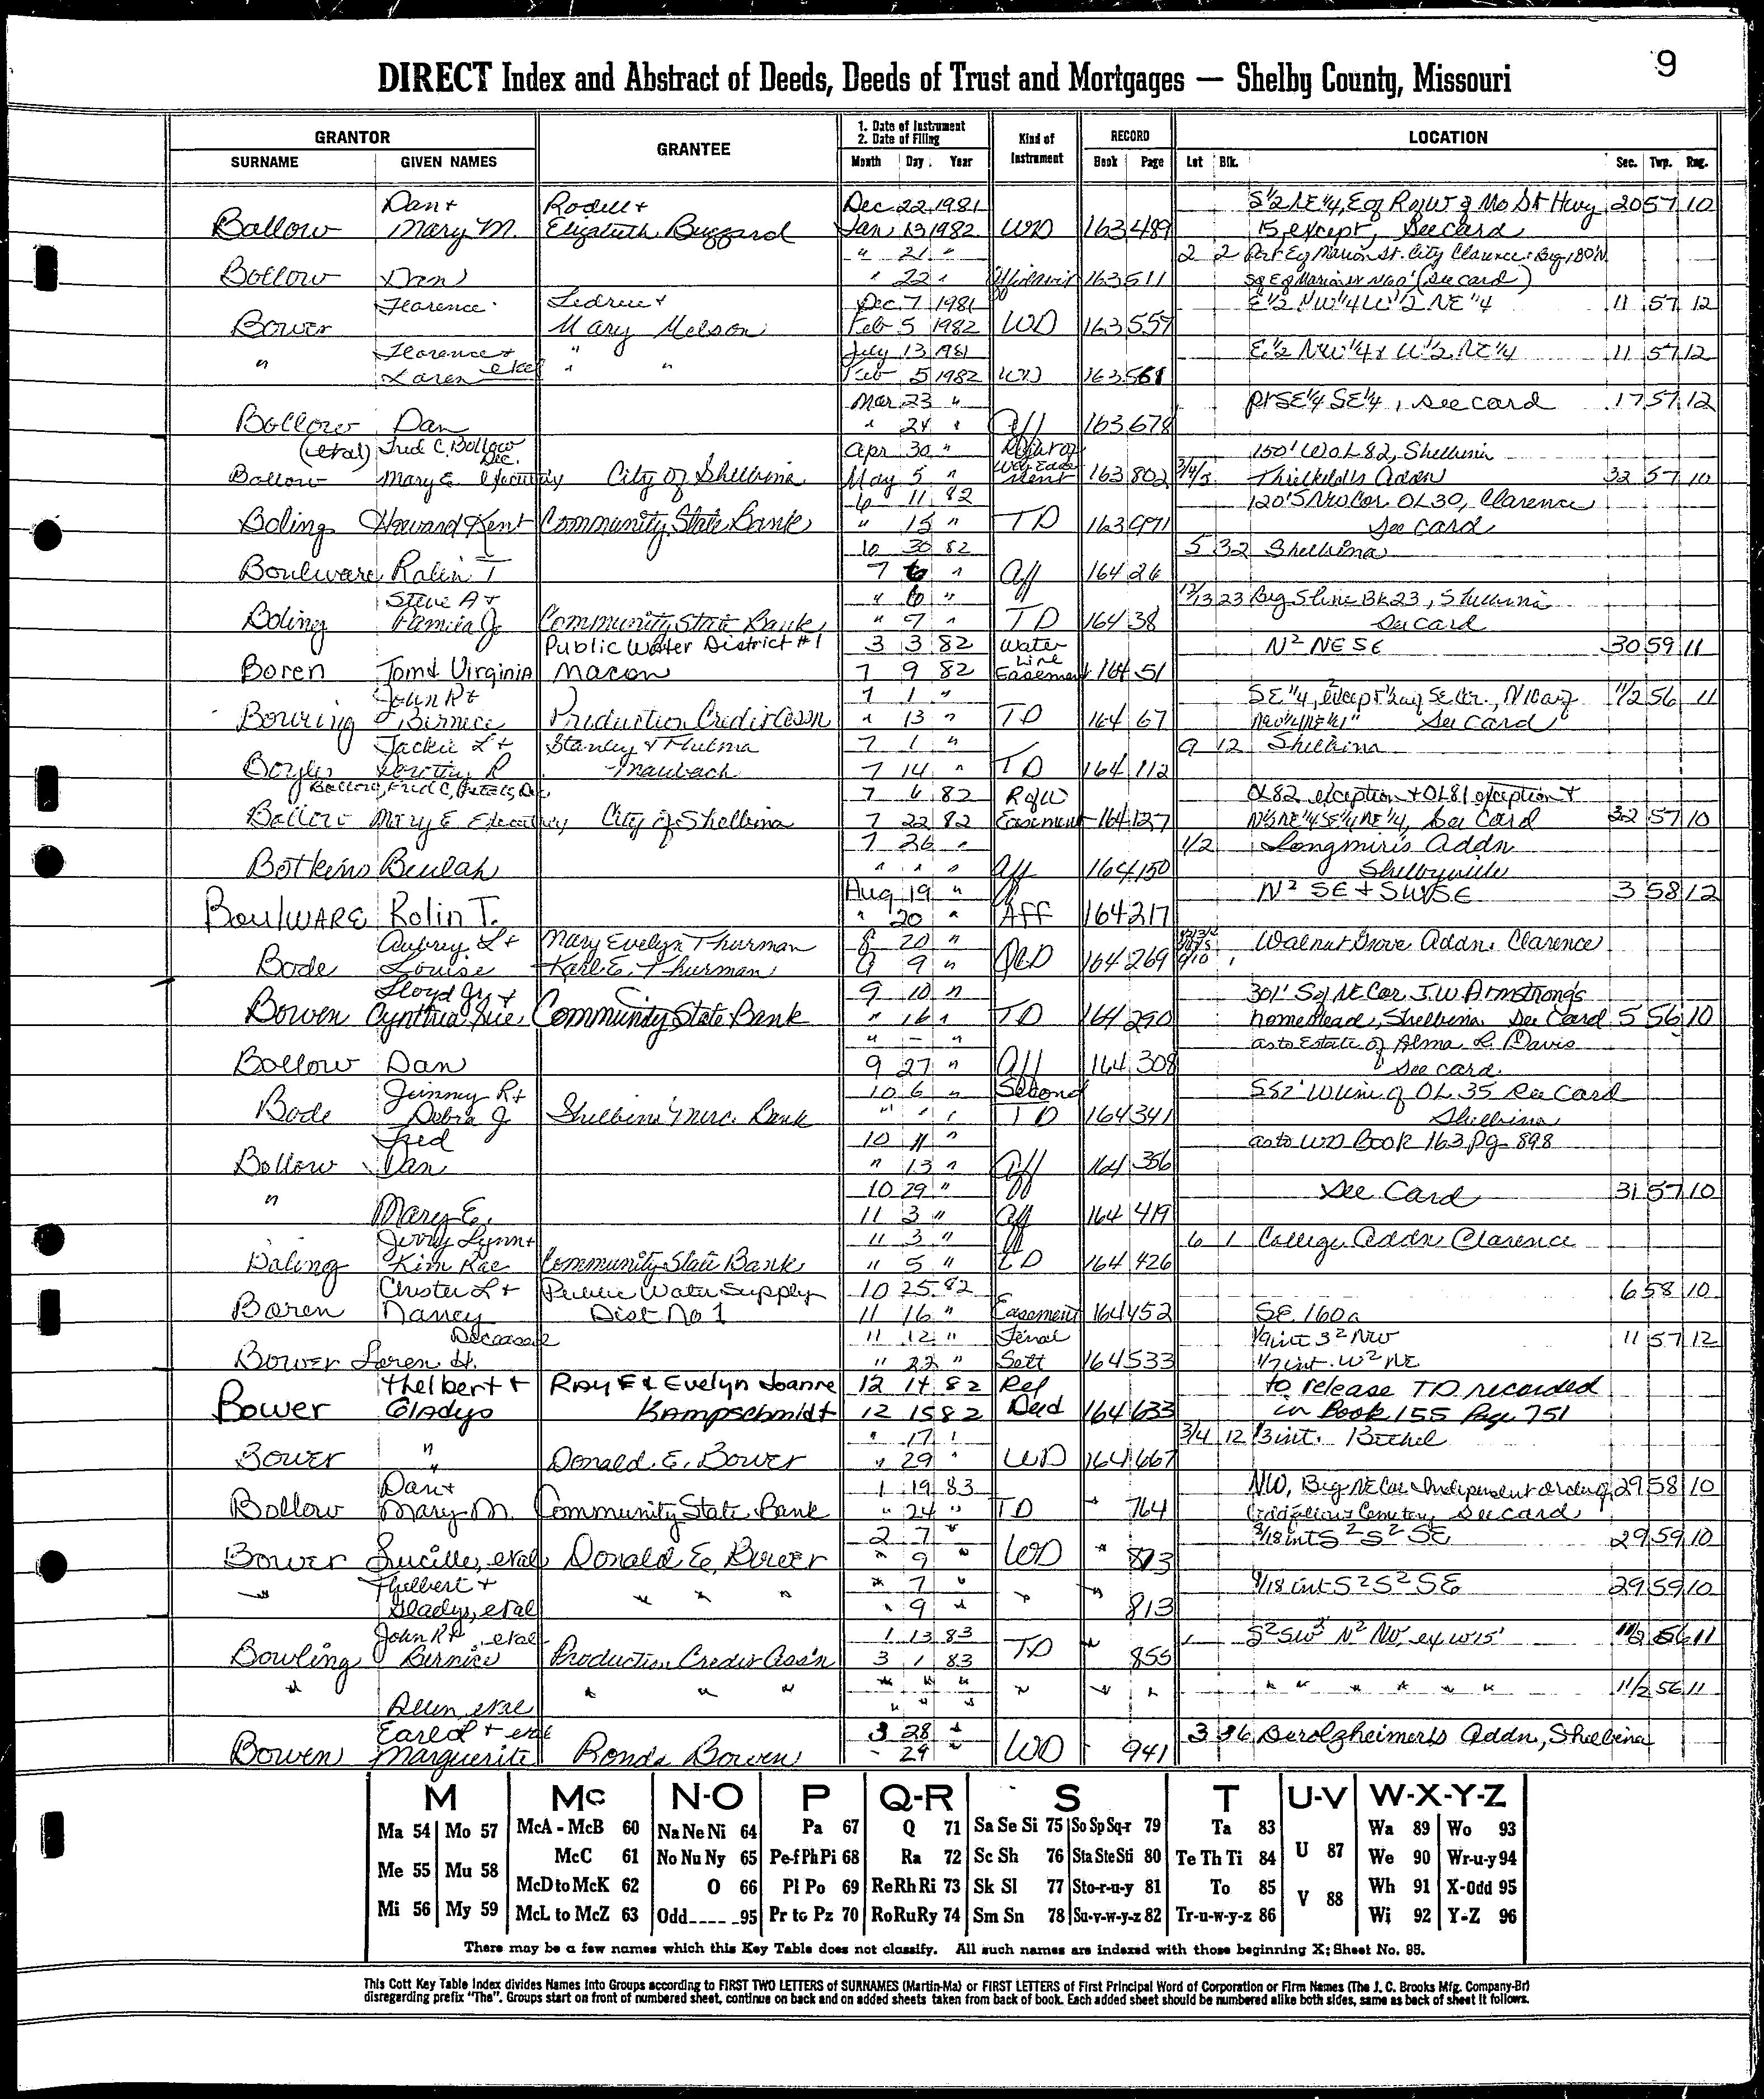 9
DIRECT Index and Abstract of Deeds, Deeds of Trust and Mortgages — Shelby County, Missouri
GRANTOR GRANTEE 1. Date of Instrument 2. Date of Filing Kind of Instrument RECORD LOCATION
SURNAME GIVEN NAMES Month Day Year Book Page Lot Blk. Sec. Twp. Rng.
Dan + Rodell + Dec 22 1981 S 1/2 NE 1/4, E of R of W of Mo St Hwy 20 57 10
Bollow Mary M. Elizabeth Buggard Jan 13 1982 WD 163 489 15, except, see card
" 21 " 2 2 City Clarence: Beg 180' N
Bollow Dan " 22 " 163 511 (see card)
Florence Ledrue + Dec 7 1981 E 1/2 NW 1/4 W 1/2 NE 1/4 11 57 12
Bower Mary Melson Feb 5 1982 WD 163 559
Florence + " July 13 1981 E 1/2 NW 1/4 & W 1/2 NE 1/4 11 57 12
" Loren etal " " Feb 5 1982 WD 163 561
Mar 23 " pt SE 1/4 SE 1/4, see card 17 57 12
Bollow Dan " 24 " Aff 163 678
(etal) Fred C. Bollow Dec. Apr 30 " Right of 150' W OL 82, Shelbina
Bollow Mary E executrix City of Shelbina May 5 " Way Easement 163 802 3/4/5 Threlkeld's Addn 32 57 10
6 11 82 120' S NW Cor OL 30, Clarence
Boling Howard Kent Community State Bank " 15 " TD 163 971 See card
6 30 82 5 32 Shelbina
Boulware Rolin T 7 6 " Aff 164 26
Steve A + " 6 " 12/13 23 Beg S line Bk 23, Shelbina
Boling Pamela J. Community State Bank " 7 " TD 164 38 See card
Public Water District #1 3 3 82 Water N2 NE SE 30 59 11
Boren Tom & Virginia Macon 7 9 82 Line Easement 164 51
John R + 7 1 " SE 1/4, except 11/2 56 11
Bowring Bernice Production Credit Assn " 13 " TD 164 67 See Card
Jackie L + Stanley & Thelma 7 1 " 9 12 Shelbina
Boyle Dorothy R Maubach 7 14 " TD 164 112
Bollow, Fred C, Dec. 7 6 82 R of W OL 82 exception + OL 81 exception +
Bollow Mary E Executrix City of Shelbina 7 22 82 Easement 164 127 N 1/2 NE 1/4 SE 1/4 NE 1/4, See Card 32 57 10
7 26 " 1/2 Longmire's Addn
Botkins Beulah " " " Aff 164 150 Shelbyville
Aug 19 " N2 SE + SW SE 3 58 12
Boulware Rolin T. " 20 " Aff 164 217
Aubrey L + Mary Evelyn Thurman 8 20 " Walnut Grove Addn. Clarence
Bode Louise Karl E. Thurman 9 9 " QCD 164 269
Lloyd Jr. + 9 10 " 301' S of NE Cor J.W. Armstrong's
Bowen Cynthia Sue Community State Bank " 16 " TD 164 290 homestead, Shelbina See Card 5 56 10
" — " as to Estate of Alma L. Davis
Bollow Dan 9 27 " Aff 164 308 See card.
Jimmy R + 10 6 " Second S 82' W line of OL 35 See Card
Bode Debra J Shelbina Merc. Bank " " " TD 164 341 Shelbina
Fred 10 11 " as to WD Book 163 Pg 898
Bollow Dan " 13 " Aff 164 356
10 29 " See Card 31 57 10
" Mary E. 11 3 " Aff 164 419
Jerry Lynn + 11 3 " 6 1 College Addn Clarence
Boling Kim Rae Community State Bank " 5 " TD 164 426
Chester L + Public Water Supply 10 25 82 6 58 10
Boren Nancy Dist No 1 11 16 " Easement 164 452 SE 160a
Deceased 11 12 " Final 1/9 int S2 NW 11 57 12
Bower Loren H. " 22 " Sett 164 533 1/7 int. W2 NE
Thelbert + Roy F & Evelyn Joanne 12 14 82 Rel to release TD recorded
Bower Gladys Kampschmidt 12 15 82 Deed 164 633 in Book 155 Page 751
" 17 " 3/4 12 1/3 int. Bethel
Bower " Donald E. Bower " 29 " WD 164 667
Dan + 1 19 83 NW, Beg NE Cor Independent Order of 29 58 10
Bollow Mary M. Community State Bank " 24 " TD " 764 Oddfellows Cemetery see card
2 7 " /18 int S2 S2 SE 29 59 10
Bower Lucille, etal Donald E. Bower " 9 " WD " 813
Thelbert + " 7 " /18 int S2 S2 SE 29 59 10
" Gladys, etal " " " " 9 " " " 813
John R + etal 1 13 83 S2 SW N2 NW ex W 15' 11/2 56 11
Bowling Bernice Production Credit Ass'n 3 1 83 TD " 855
" " " " " " " " " " " " " " " " 11/2 56 11
Allen etal " " "
Earl L + etal 3 28 " 3 36 Berolzheimer's Addn, Shelbina
Bowen Marguerite Ronda Bowen " 29 " WD " 941
M Mc N-O P Q-R S T U-V W-X-Y-Z
Ma 54 Mo 57 McA - McB 60 Na Ne Ni 64 Pa 67 Q 71 Sa Se Si 75 So Sp Sq-r 79 Ta 83 U 87 Wa 89 Wo 93
Me 55 Mu 58 McC 61 No Nu Ny 65 Pe-f Ph Pi 68 Ra 72 Sc Sh 76 Sta Ste Sti 80 Te Th Ti 84 We 90 Wr-u-y 94
McD to McK 62 O 66 Pl Po 69 Re Rh Ri 73 Sk Sl 77 Sto-r-u-y 81 To 85 V 88 Wh 91 X-Odd 95
Mi 56 My 59 McL to McZ 63 Odd____95 Pr to Pz 70 Ro Ru Ry 74 Sm Sn 78 Su-v-w-y-z 82 Tr-u-w-y-z 86 Wi 92 Y-Z 96
There may be a few names which this Key Table does not classify. All such names are indexed with those beginning X; Sheet No. 95.
This Cott Key Table Index divides Names into Groups according to FIRST TWO LETTERS of SURNAMES (Martin-Ma) or FIRST LETTERS of First Principal Word of Corporation or Firm Names (The J. C. Brooks Mfg. Company-Br)
disregarding prefix "The". Groups start on front of numbered sheet, continue on back and on added sheets taken from back of book. Each added sheet should be numbered alike both sides, same as back of sheet it follows.